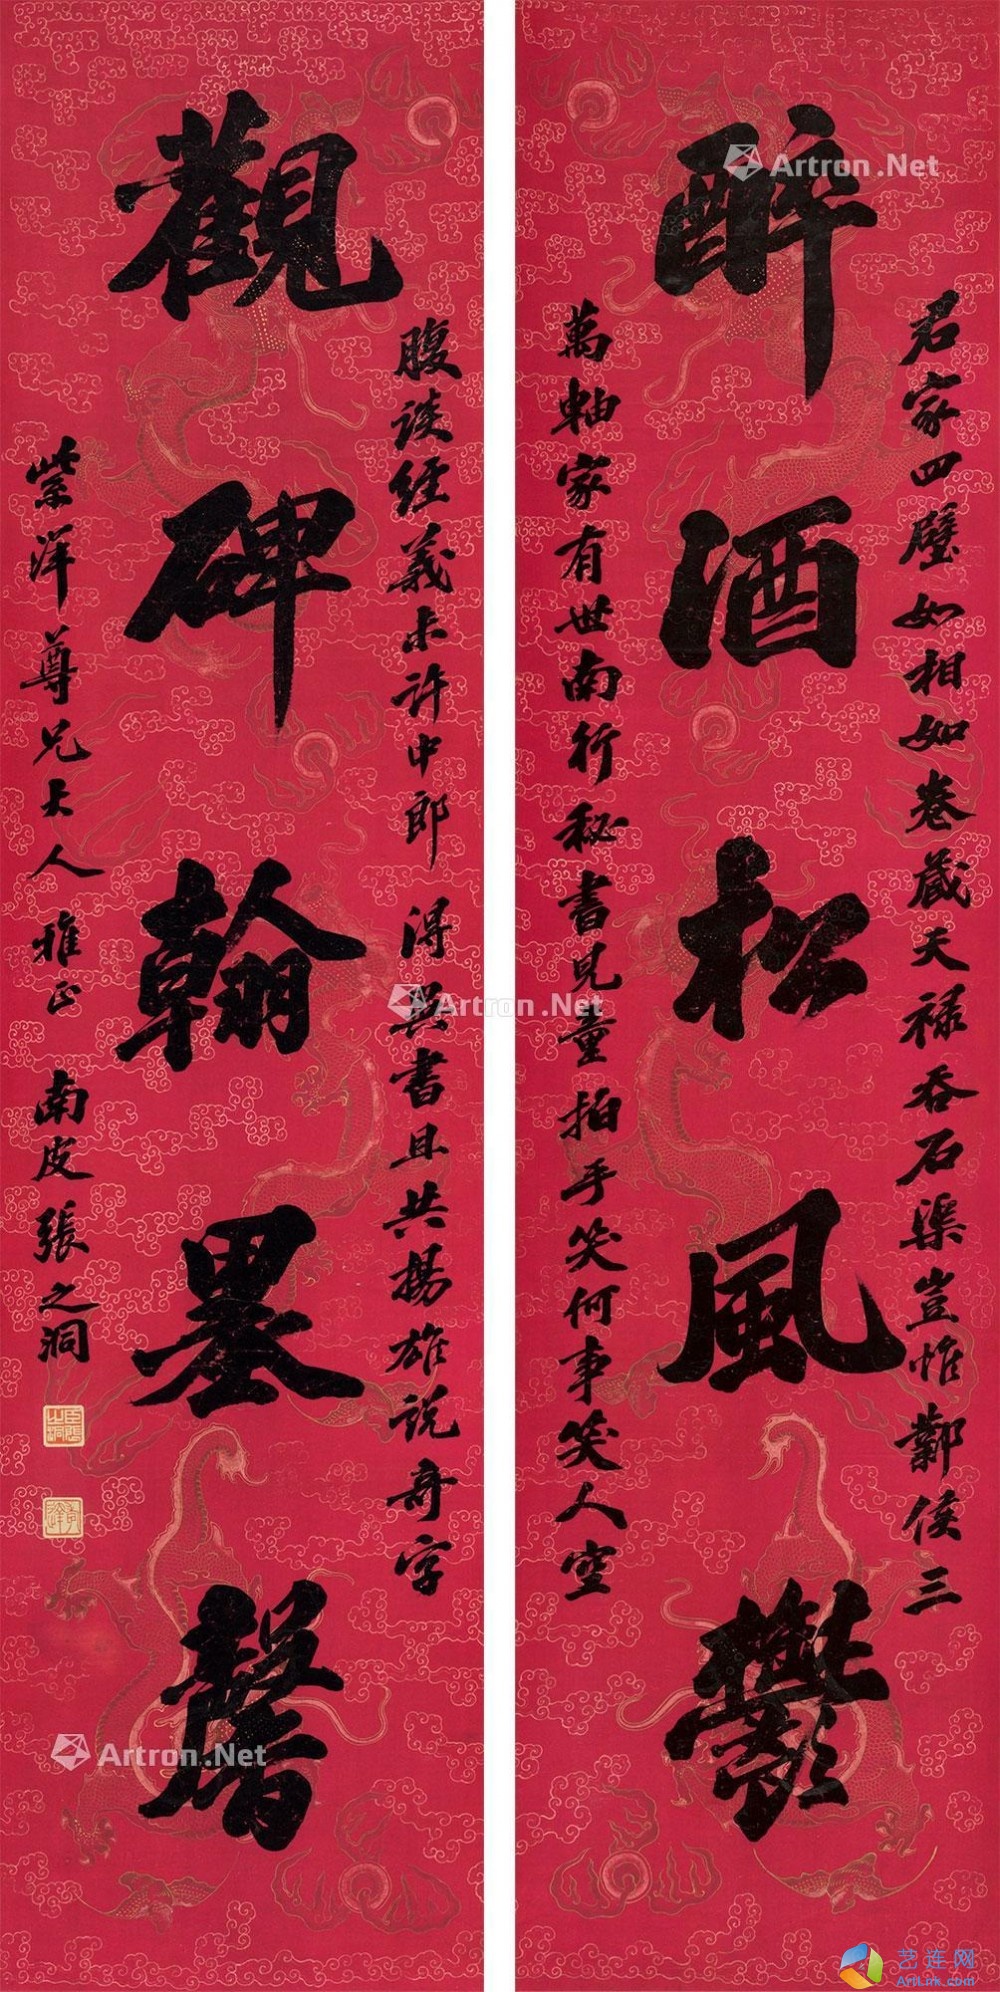 醉酒松風鬱
君家四壁如相如卷藏天禄吞石渠豈惟鄴侯三
萬軸家有世南行秘書見童拍手笑何事笑人空
觀碑翰墨馨
腹談經義未許中郎得異書且共揚雄說奇字
紫洋尊兄大人雅正 南皮張之洞
Artron.Net
Artron.Net
Artron.Net
艺连网
ArtLink.com